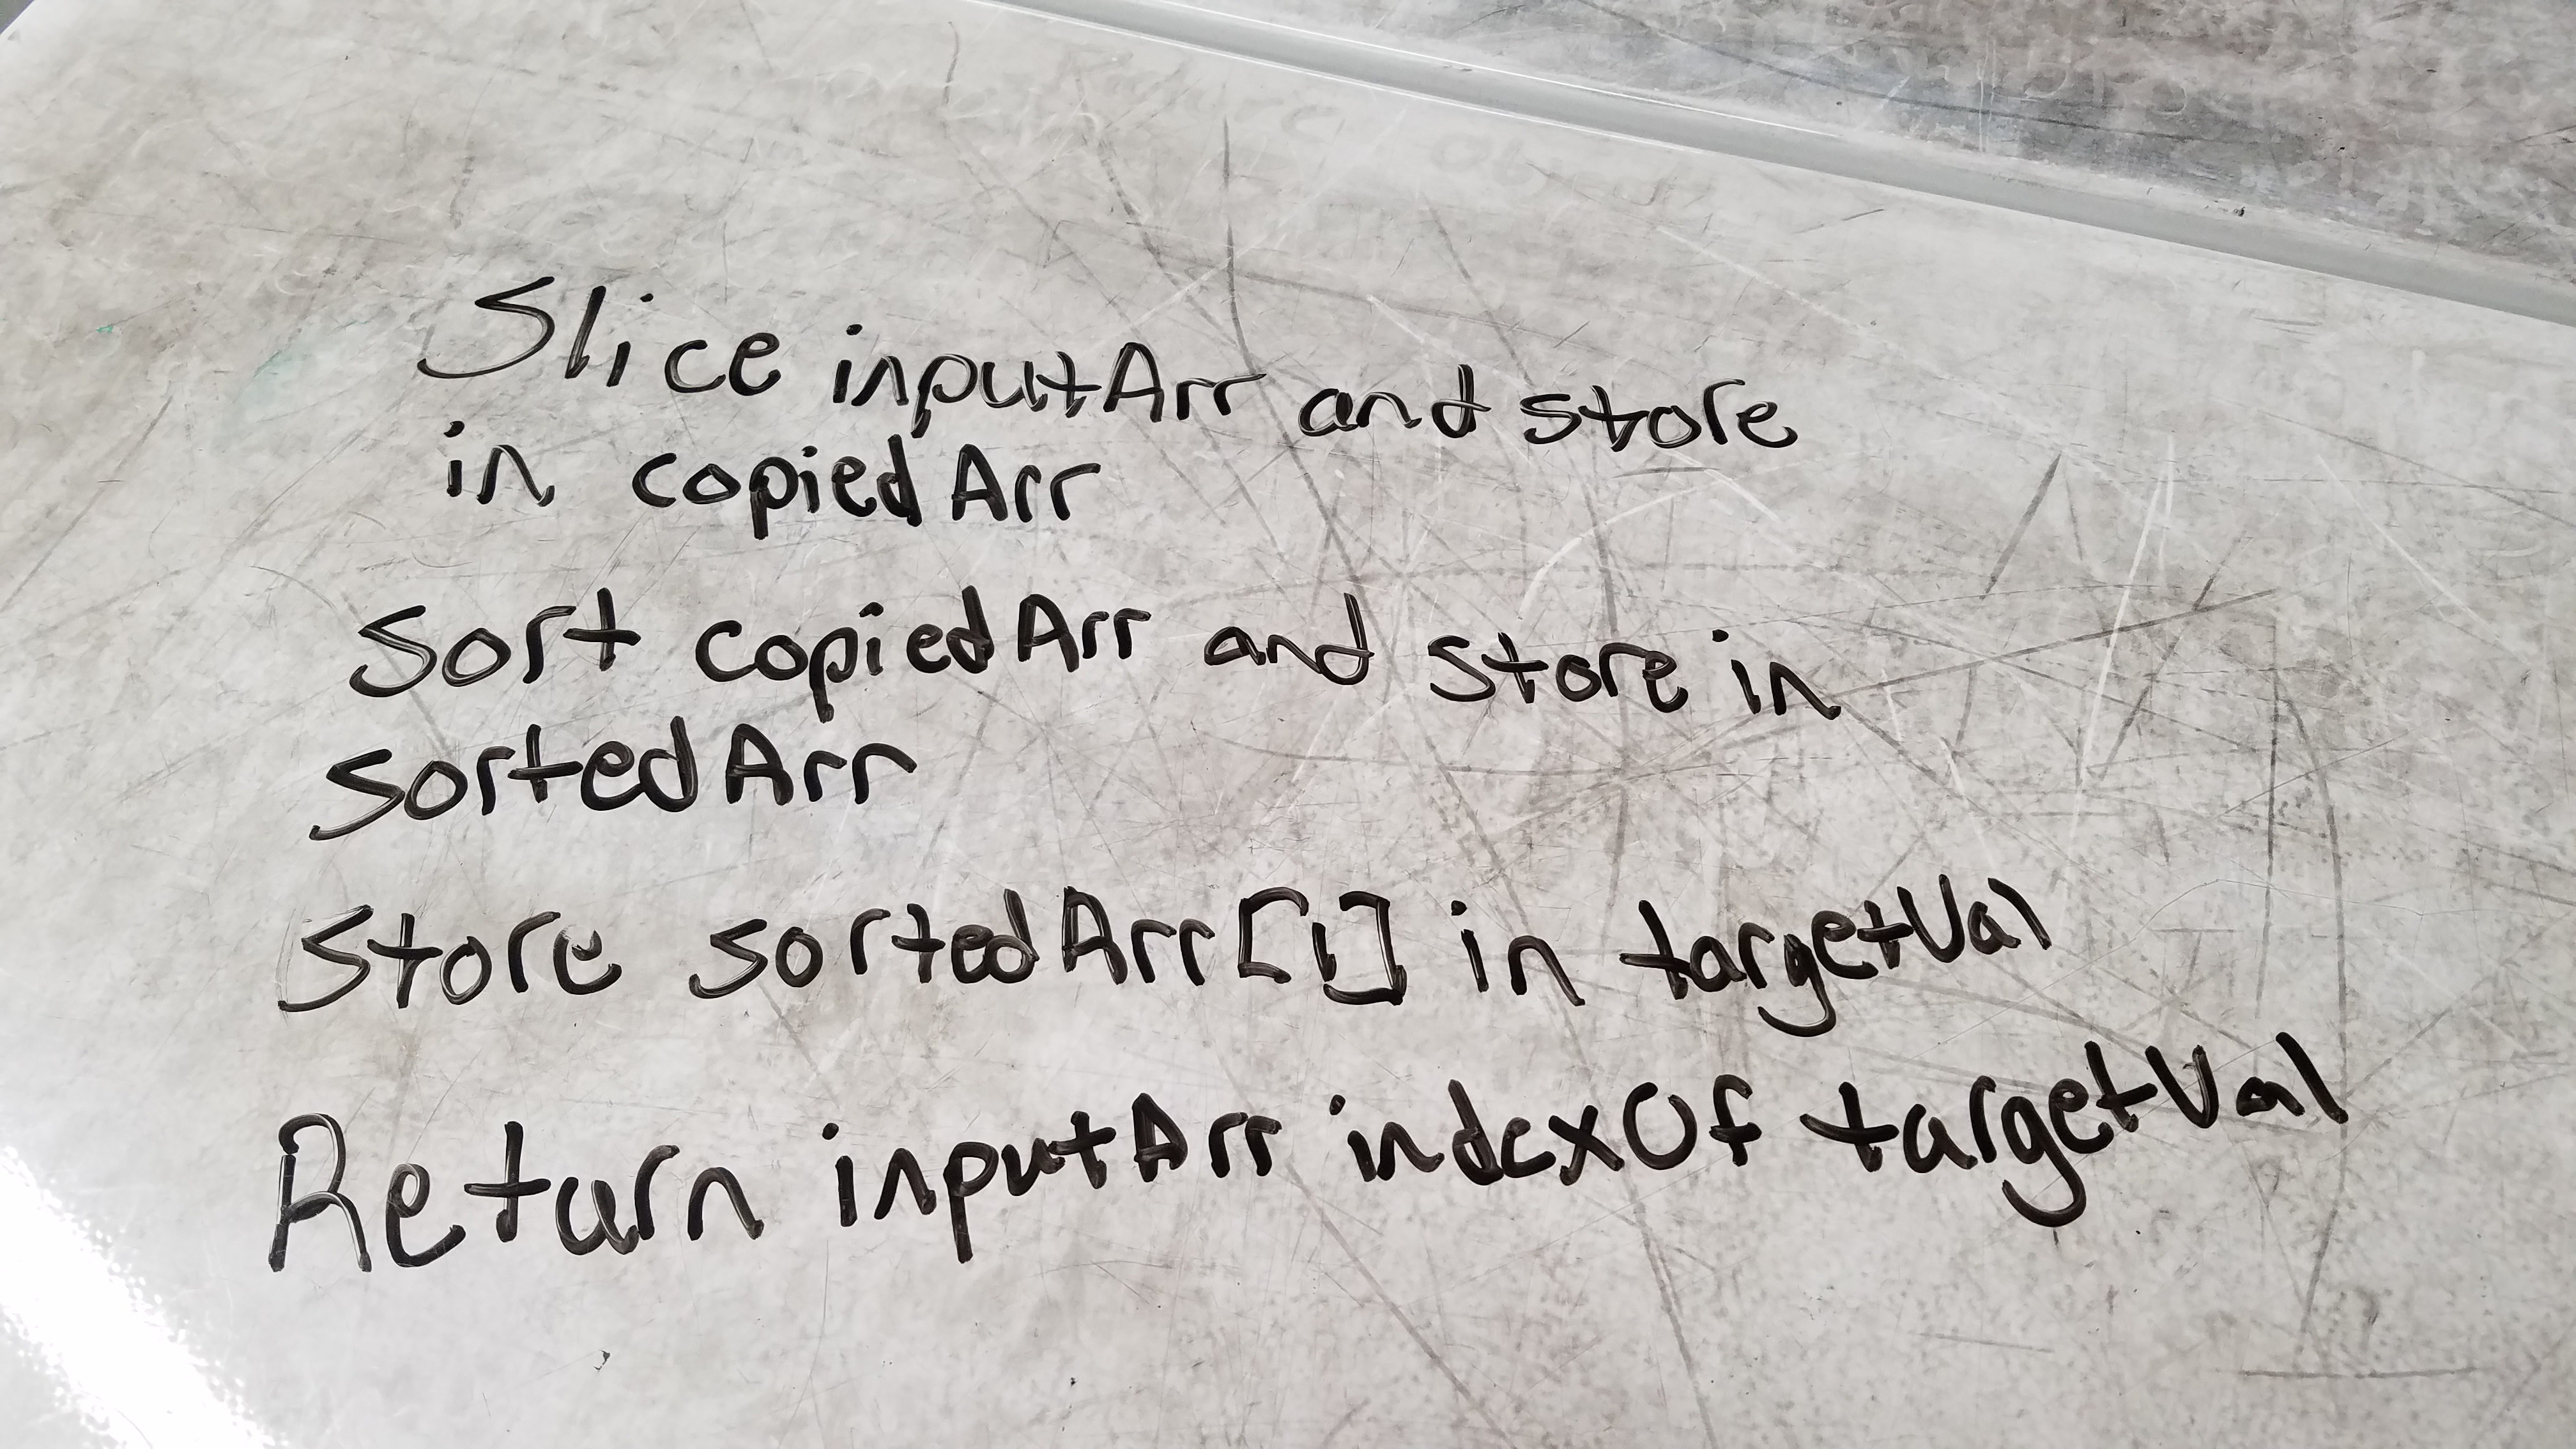 Slice inputArr and store
in copiedArr
Sort copiedArr and store in
sortedArr
Store sortedArr[1] in targetVal
Return inputArr indexOf targetVal